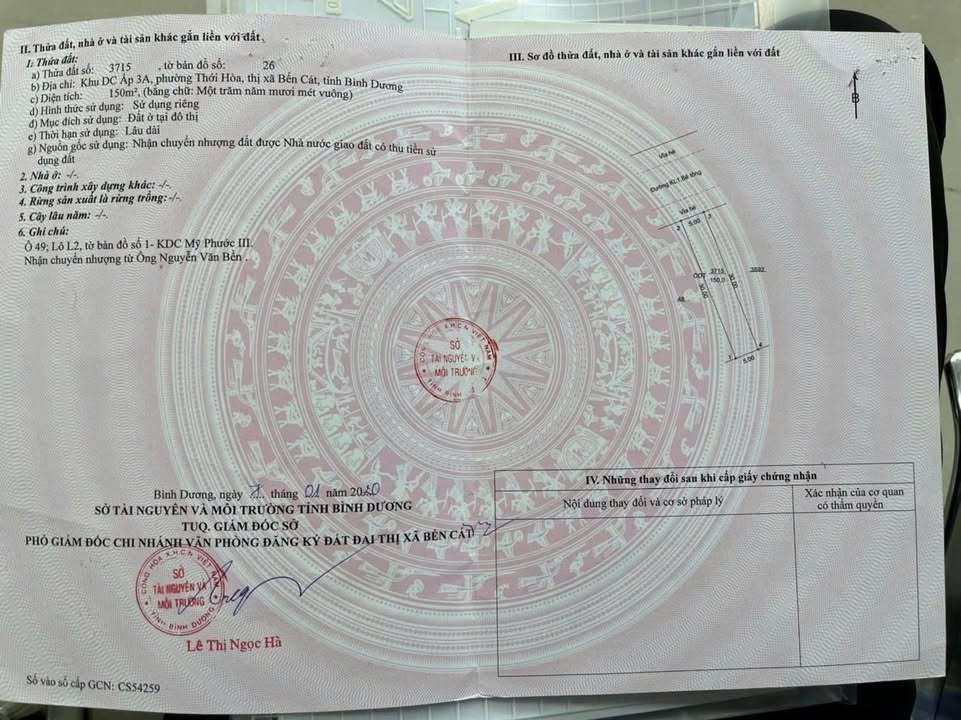 II. Thửa đất, nhà ở và tài sản khác gắn liền với đất
1. Thửa đất:
a) Thửa đất số: 3715 , tờ bản đồ số: 26
b) Địa chỉ: Khu DC Ấp 3A, phường Thới Hòa, thị xã Bến Cát, tỉnh Bình Dương
c) Diện tích: 150m², (bằng chữ: Một trăm năm mươi mét vuông)
d) Hình thức sử dụng: Sử dụng riêng
đ) Mục đích sử dụng: Đất ở tại đô thị
e) Thời hạn sử dụng: Lâu dài
g) Nguồn gốc sử dụng: Nhận chuyển nhượng đất được Nhà nước giao đất có thu tiền sử
dụng đất
2. Nhà ở: -/-.
3. Công trình xây dựng khác: -/-.
4. Rừng sản xuất là rừng trồng:-/-.
5. Cây lâu năm: -/-.
6. Ghi chú:
Ô 49; Lô L2, tờ bản đồ số 1- KDC Mỹ Phước III.
Nhận chuyển nhượng từ Ông Nguyễn Văn Bển .
CỘNG HÒA X.H.C.N VIỆT NAM
SỞ
TÀI NGUYÊN VÀ
MÔI TRƯỜNG
TỈNH BÌNH
Bình Dương, ngày tháng 01 năm 2020
SỞ TÀI NGUYÊN VÀ MÔI TRƯỜNG TỈNH BÌNH DƯƠNG
TUQ. GIÁM ĐỐC SỞ
PHÓ GIÁM ĐỐC CHI NHÁNH VĂN PHÒNG ĐĂNG KÝ ĐẤT ĐAI THỊ XÃ BẾN CÁT
CỘNG HÒA X.H.C.N VIỆT NAM
SỞ
TÀI NGUYÊN VÀ
MÔI TRƯỜNG
TỈNH BÌNH DƯƠNG
Lê Thị Ngọc Hà
Số vào sổ cấp GCN: CS54259
III. Sơ đồ thửa đất, nhà ở và tài sản khác gắn liền với đất
B
Vỉa hè
Đường KL1,Bê tông
Vỉa hè
2 5.00 3
ODT 3715
150,0
3692
48
30.00
30.00
1 5.00 4
IV. Những thay đổi sau khi cấp giấy chứng nhận
Nội dung thay đổi và cơ sở pháp lý
Xác nhận của cơ quan
có thẩm quyền